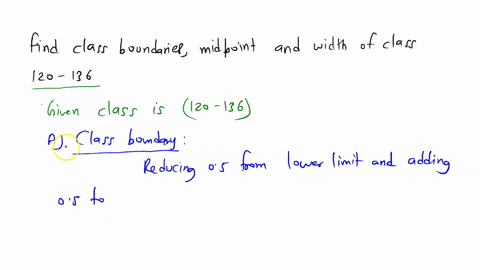 find class boundaries, midpoint and width of class
120 - 136
Given class is (120 - 136)
A). Class boundary:
Reducing 0.5 from lower limit and adding
0.5 to